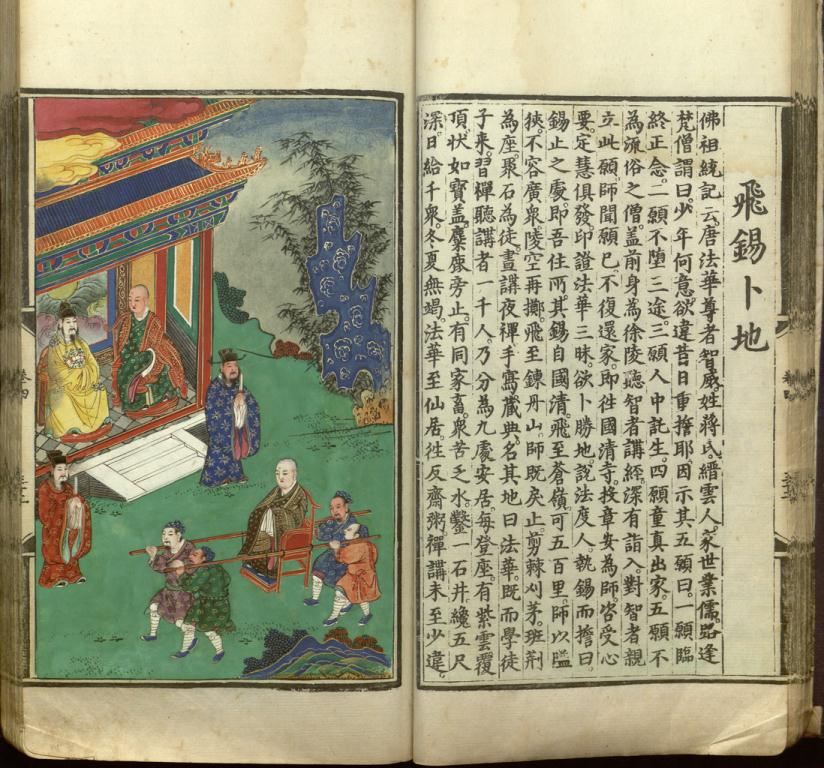 飛錫卜地
佛祖統記云。唐法華尊者智威。姓蔣氏。縉雲人。家世業儒。路逢
梵僧謂曰。少年何意欲違昔日重擔耶。因示其五願曰。一願臨
終正念。二願不墮三途。三願人中託生。四願童真出家。五願不
為流俗之僧。蓋前身為徐陵。聽智者講經。深有詣入。對智者親
立此願。師聞願已。不復還家。即往國清寺。投章安為師。咨受心
要。定慧俱發。印證法華三昧。欲卜勝地。說法度人。執錫而擔曰。
錫止之處。即吾住所。其錫自國清。飛至蒼嶺。可五百里。師以隘
狹。不容廣眾。陵空再擲。飛至鍊丹山。師既戾止。剪棘刈茅。班荆
為座。聚石為徒。晝講夜禪。手寫藏典。名其地曰法華。既而學徒
子來。習禪聽講者一千人。乃分為九處安居。每登座。有紫雲覆
頂。狀如寶蓋。麋鹿旁止。有同家畜。眾苦乏水。鑿一石井。纔五尺
深。日給千眾。冬夏無竭。法華至仙居。往反齋粥。禪講未至少違。
卷四
卷四